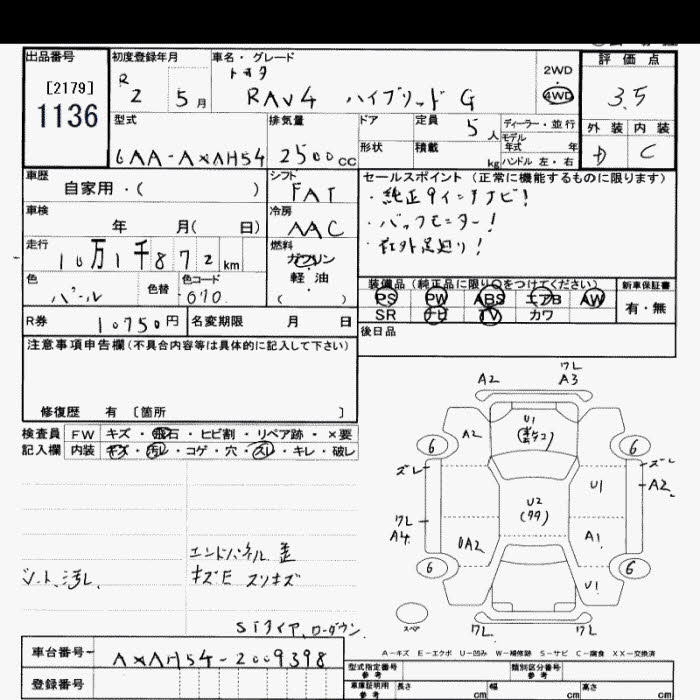 出品番号 初度登録年月 車名・グレード 評価点
[2179] R 2 5月 トヨタ 2WD
1136 RAV4 ハイブリッド G 4WD 3.5
型式 排気量 ドア 定員 5人 ディーラー・並行 外装 内装
モデル年式 年
6AA-AXAH54 2500cc 形状 積載 kg ハンドル 左・右 D C
車歴 シフト セールスポイント(正常に機能するものに限ります)
自家用・( ) FAT ・純正9インチナビ!
車検 冷房 ・バックモニター!
年 月( 日) AAC ・社外足廻り!
走行 燃料
10万1千872km ガソリン
色 色替 色コード 軽・油 装備品(純正品に限り○をつけてください) 新車保証書
パール 070 ( ) PS PW ABS エアB AW 有・無
R券 10750円 名変期限 月 日 SR ナビ TV カワ
注意事項申告欄(不具合内容等は具体的に記入して下さい) 後日品
修復歴 有 〔箇所 〕
検査員 FW キズ・飛石・ヒビ割・リペア跡・×要
記入欄 内装 キズ・汚レ・コゲ・穴・スレ・キレ・破レ
ワレ
A2 A3
U1
A2
6 6
ズレ ズレ
U1 A2
U2
ワレ
A4 UA2 A1
6 6
U1
エンドパネル 歪
シート汚レ キズE スリキズ
スペア
STタイヤ、ローダウン ワレ ワレ
A-キズ E-エクボ U-凹み W-補修跡 S-サビ C-腐食 XX-交換済
車台番号 AXAH54-2009398 型式指定番号 参考 類別区分番号 参考
登録番号 車庫証明用 参考 長さ cm 幅 cm 高さ cm